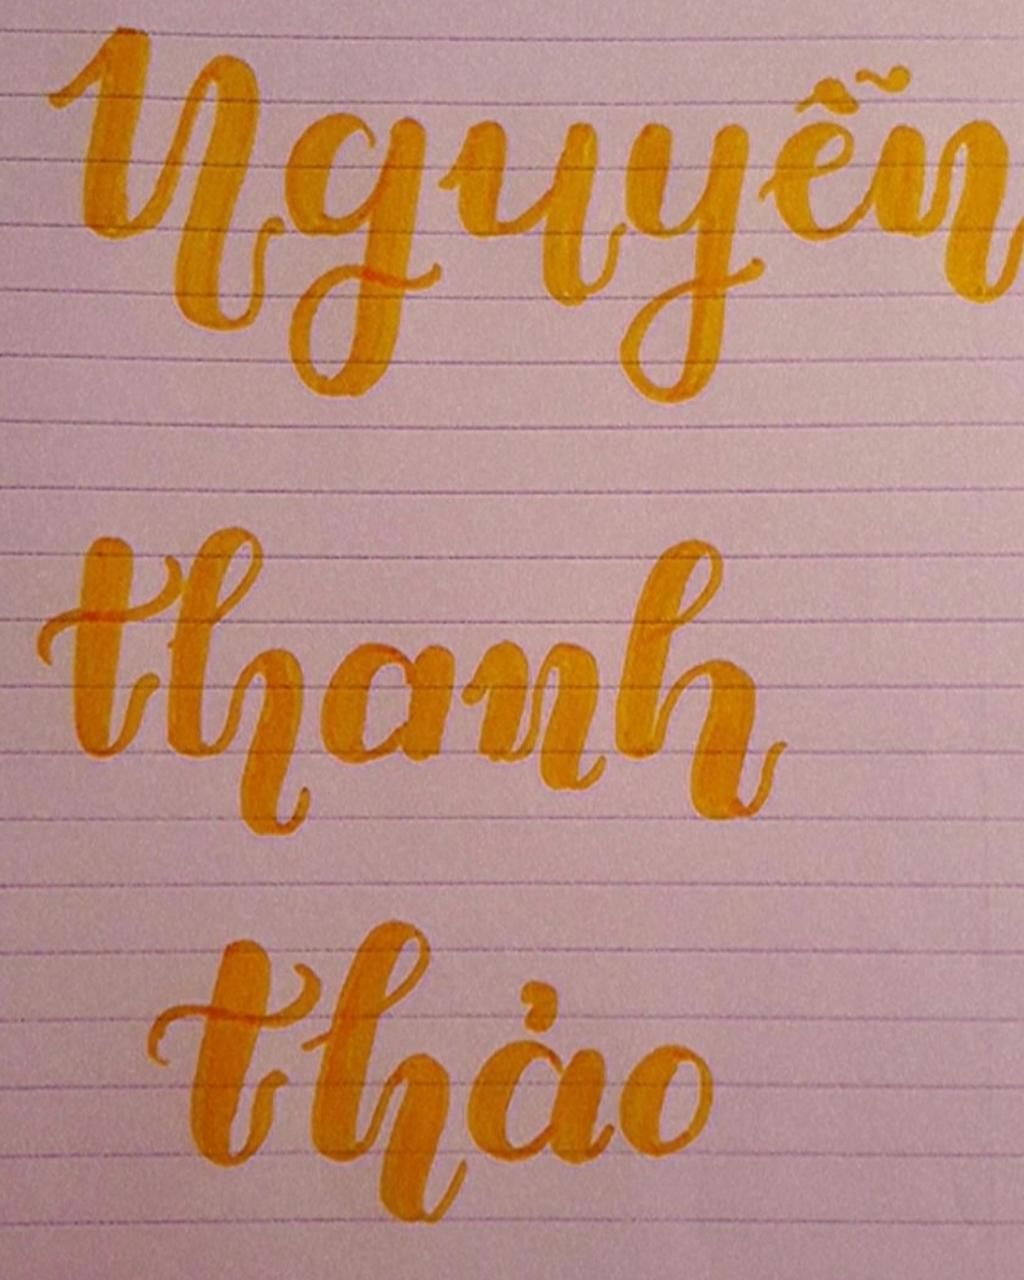 Nguyễn
thanh
thảo